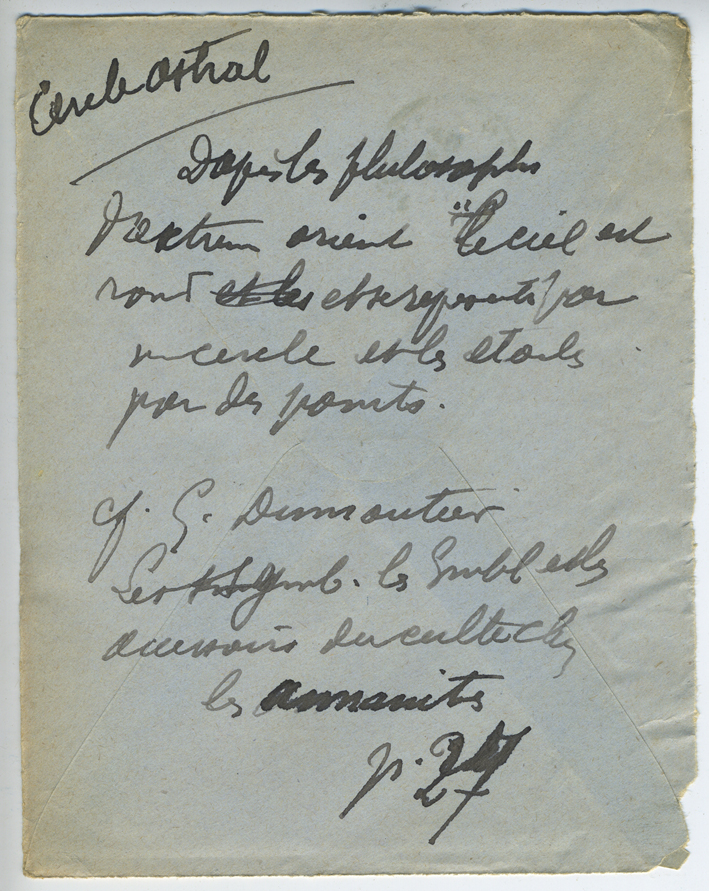 Cercle astral
D'après les philosophes
d'extrem orient "le ciel est
rond et les et se représente par
un cercle et les étoiles
par des points.
cf. G. Dumoutier
Les Symb. les Symboles et les
accessoires du culte chez
les annamites
p. 27